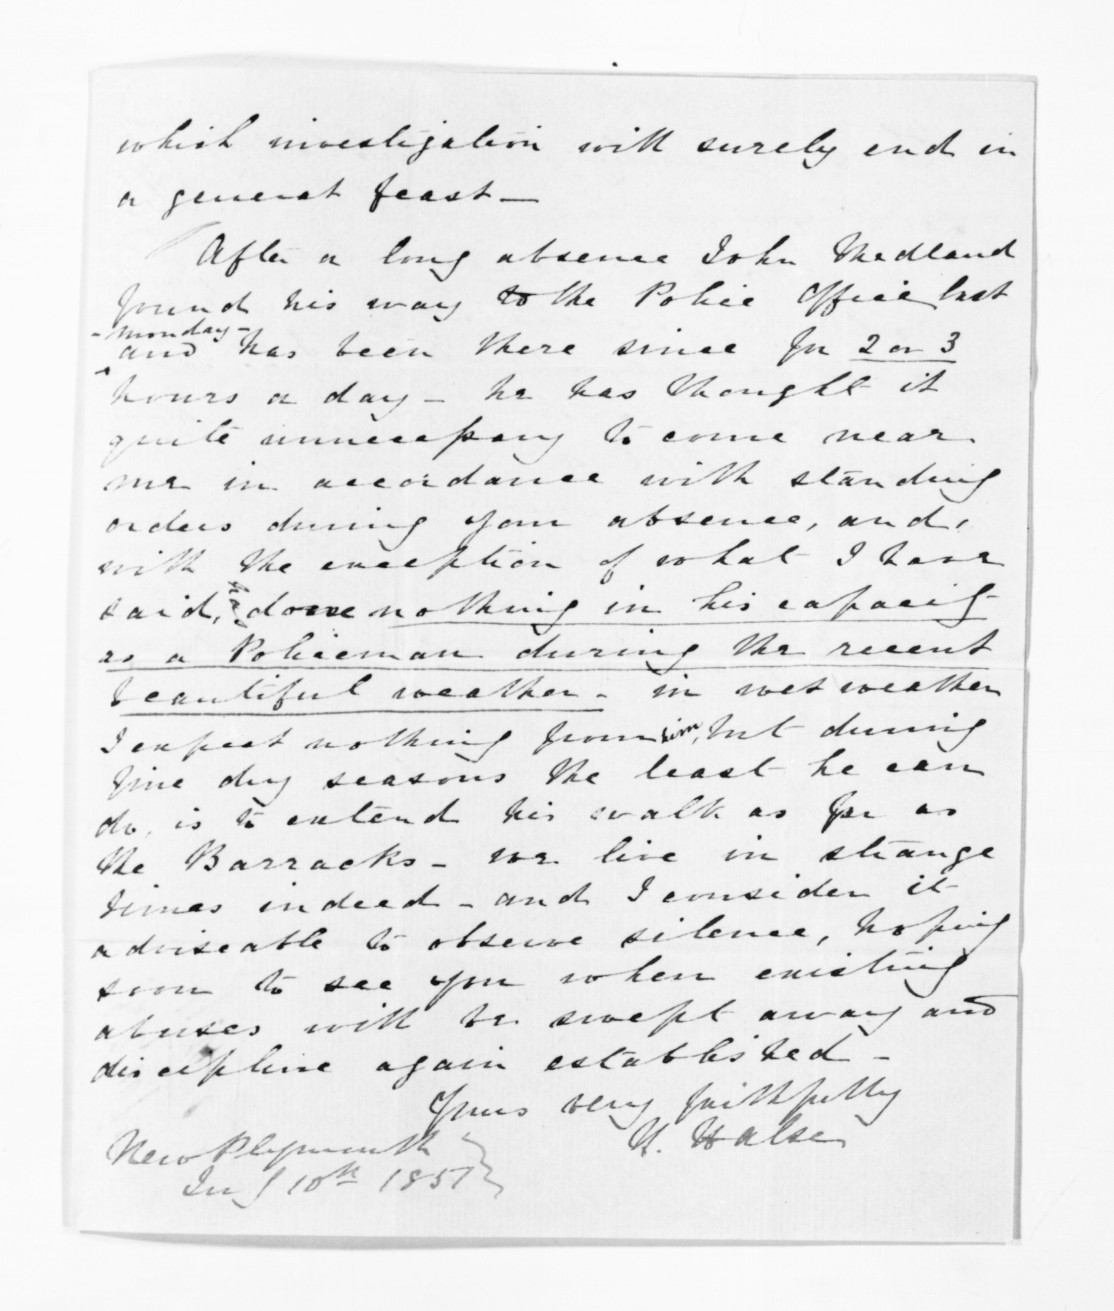 which investigation will surely end in
a general feast—
After a long absence John Medland
found his way to the Police Office last
- Monday -
and has been there since for 2 or 3
hours a day — he has thought it
quite unnecessary to come near
me in accordance with standing
orders during your absence, and,
with the exception of what I have
said, has done nothing in his capacity
as a Policeman during the recent
beautiful weather — in wet weather
I expect nothing from him, but during
fine dry seasons the least he can
do, is to extend his walk as far as
the Barracks — we live in strange
times indeed — and I consider it
adviseable to observe silence, hoping
soon to see you when existing
abuses will be swept away and
discipline again established —
Yours very faithfully
H. Halse
New Plymouth
10th 1851